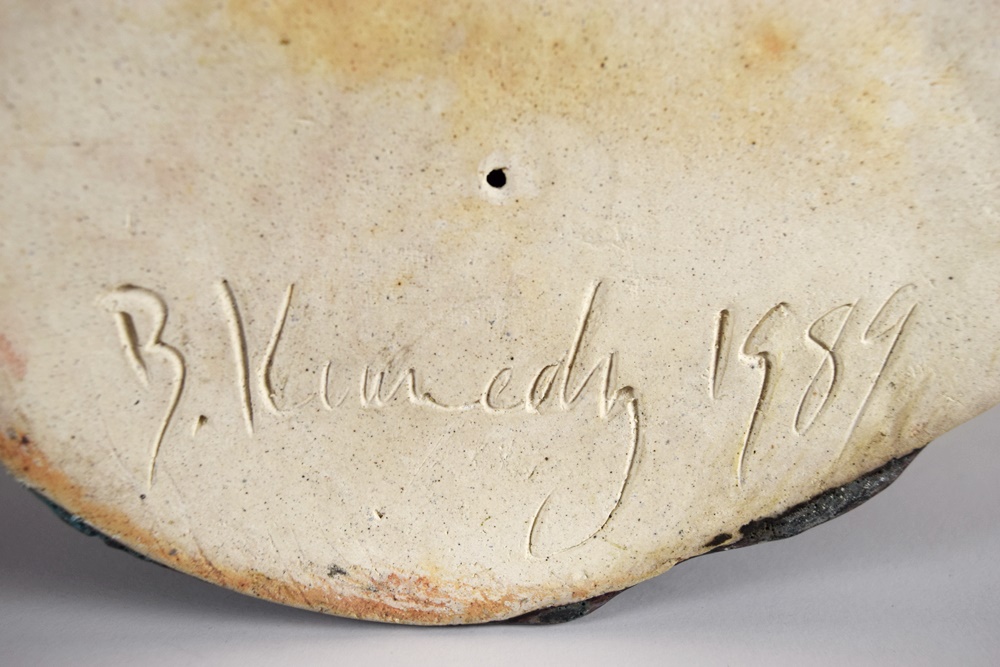 B. Kennedy 1989